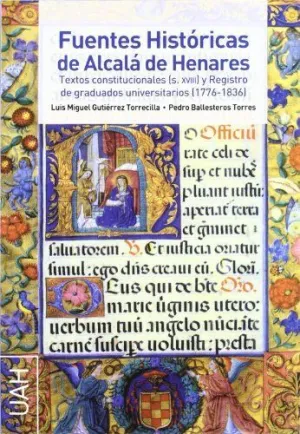 Fuentes Históricas
de Alcalá de Henares
Textos constitucionales (s. XVIII) y Registro
de graduados universitarios (1776-1836)
Luis Miguel Gutiérrez Torrecilla • Pedro Ballesteros Torres
Officiū
rate celi de
sup et nubes
pluant iustū:
aperiat terra
et germinet
saluatorem. B. Et iusticia oriatur
simul: ego dn̄s creaui eū. Glori.
Deus qui de bte Oro.
marie uirginis utero:
uerbum tuū angelo nūciāte
carnē suscipe voluisti: prest.
UAH